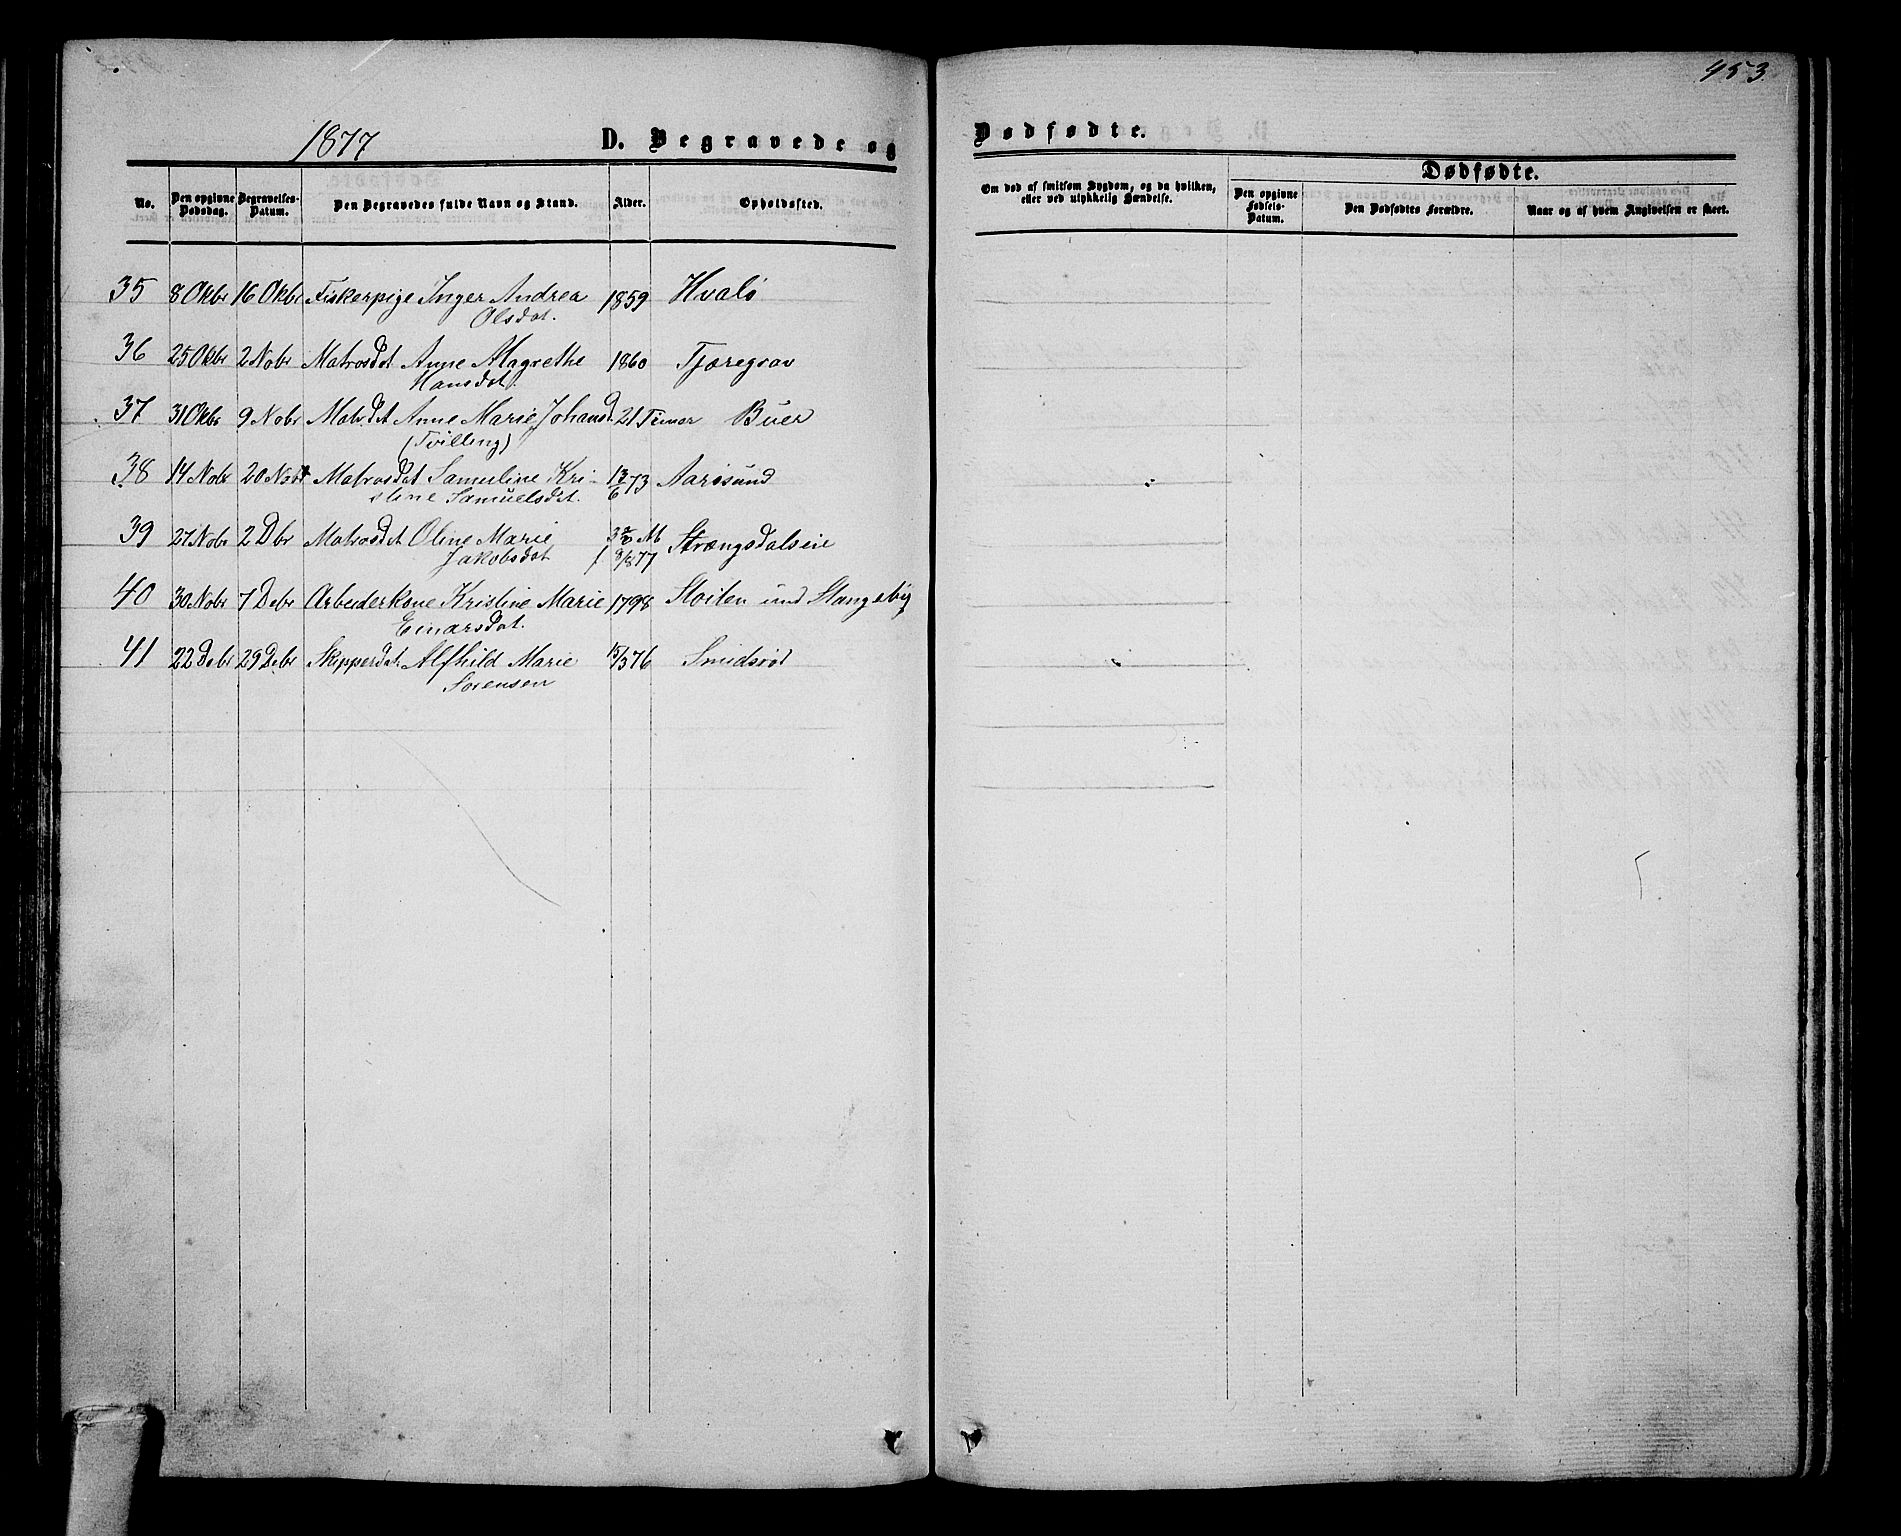 453.
1877
D. Begravede og
Dødfødte.
No.
Den opgivne Dødsdag.
Begravelses-Datum.
Den Begravedes fulde Navn og Stand.
Alder.
Opholdssted.
Om død af smitsom Sygdom, og da hvilken, eller ved ulykkelig Hændelse.
Dødfødte.
Den opgivne Fødsels-Datum.
Den Dødfødtes Forældre.
Naar og af hvem Angivelsen er skeet.
35 8 Okbr 16 Okbr Fiskerpige Inger Andrea 1859 Hvalø
Olsdat.
36 25 Okbr 2 Nobr Matrosdat Anne Magrethe 1860 Tjøregrav
Hansdat.
37 31 Okbr 9 Nobr Matr.dat Anne Marie Johansd. 21 Timer Buer
(Tvilling)
38 14 Nobr 20 Nobr Matrosdat Samuline Kri- 13/6 73 Aarøsund
stine Samuelsdat.
39 27 Nobr 2 Dbr Matrosdat Oline Marie
Jakobsdat f 9/8 77 Strængsdalseie
40 30 Nobr 7 Debr Arbeiderkone Kristine Marie 1798 Stoiten und Stangeby
Einarsdat.
41 22 Debr 29 Debr Skipperdat Alfhild Marie 15/3 76 Smidsrød
Sørensen